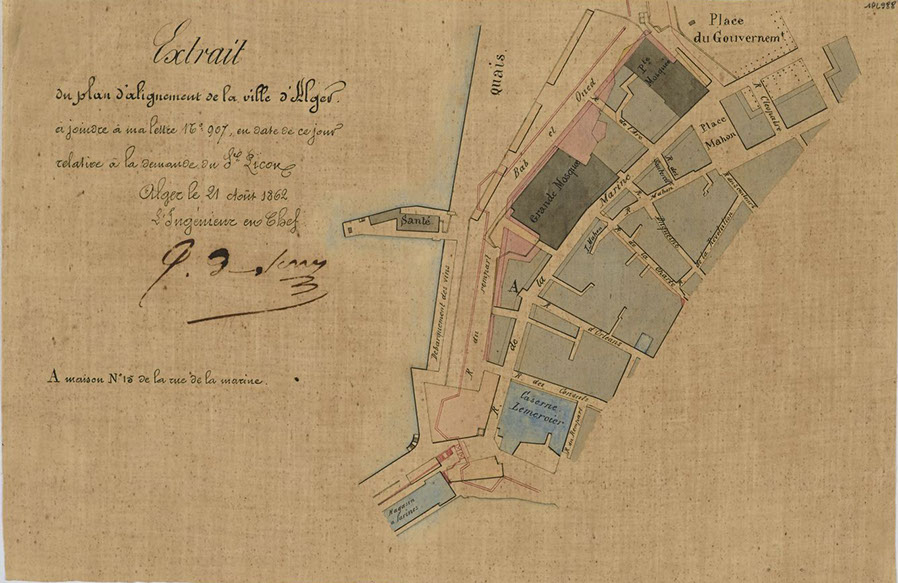 Extrait
du plan d'alignement de la ville d'Alger.
a joindre à ma lettre N° 907, en date de ce jour
relative à la demande du Sr
Alger le 21 Août 1862
L'Ingénieur en Chef
A maison N° 18 de la rue de la marine
Place
du Gouvernemt
Quais
Pte
Mosquée
R. Cléopatre
Place
Mahon
Bab el Oued
Grande Mosquée
R. de la Marine
Santé
A
Débarquement des vins
R. du rempart
R. Mahon
de la Révolution
d'Orléans
R. des Consuls
R. du Rempart
Caserne
Lemercier
Magasin